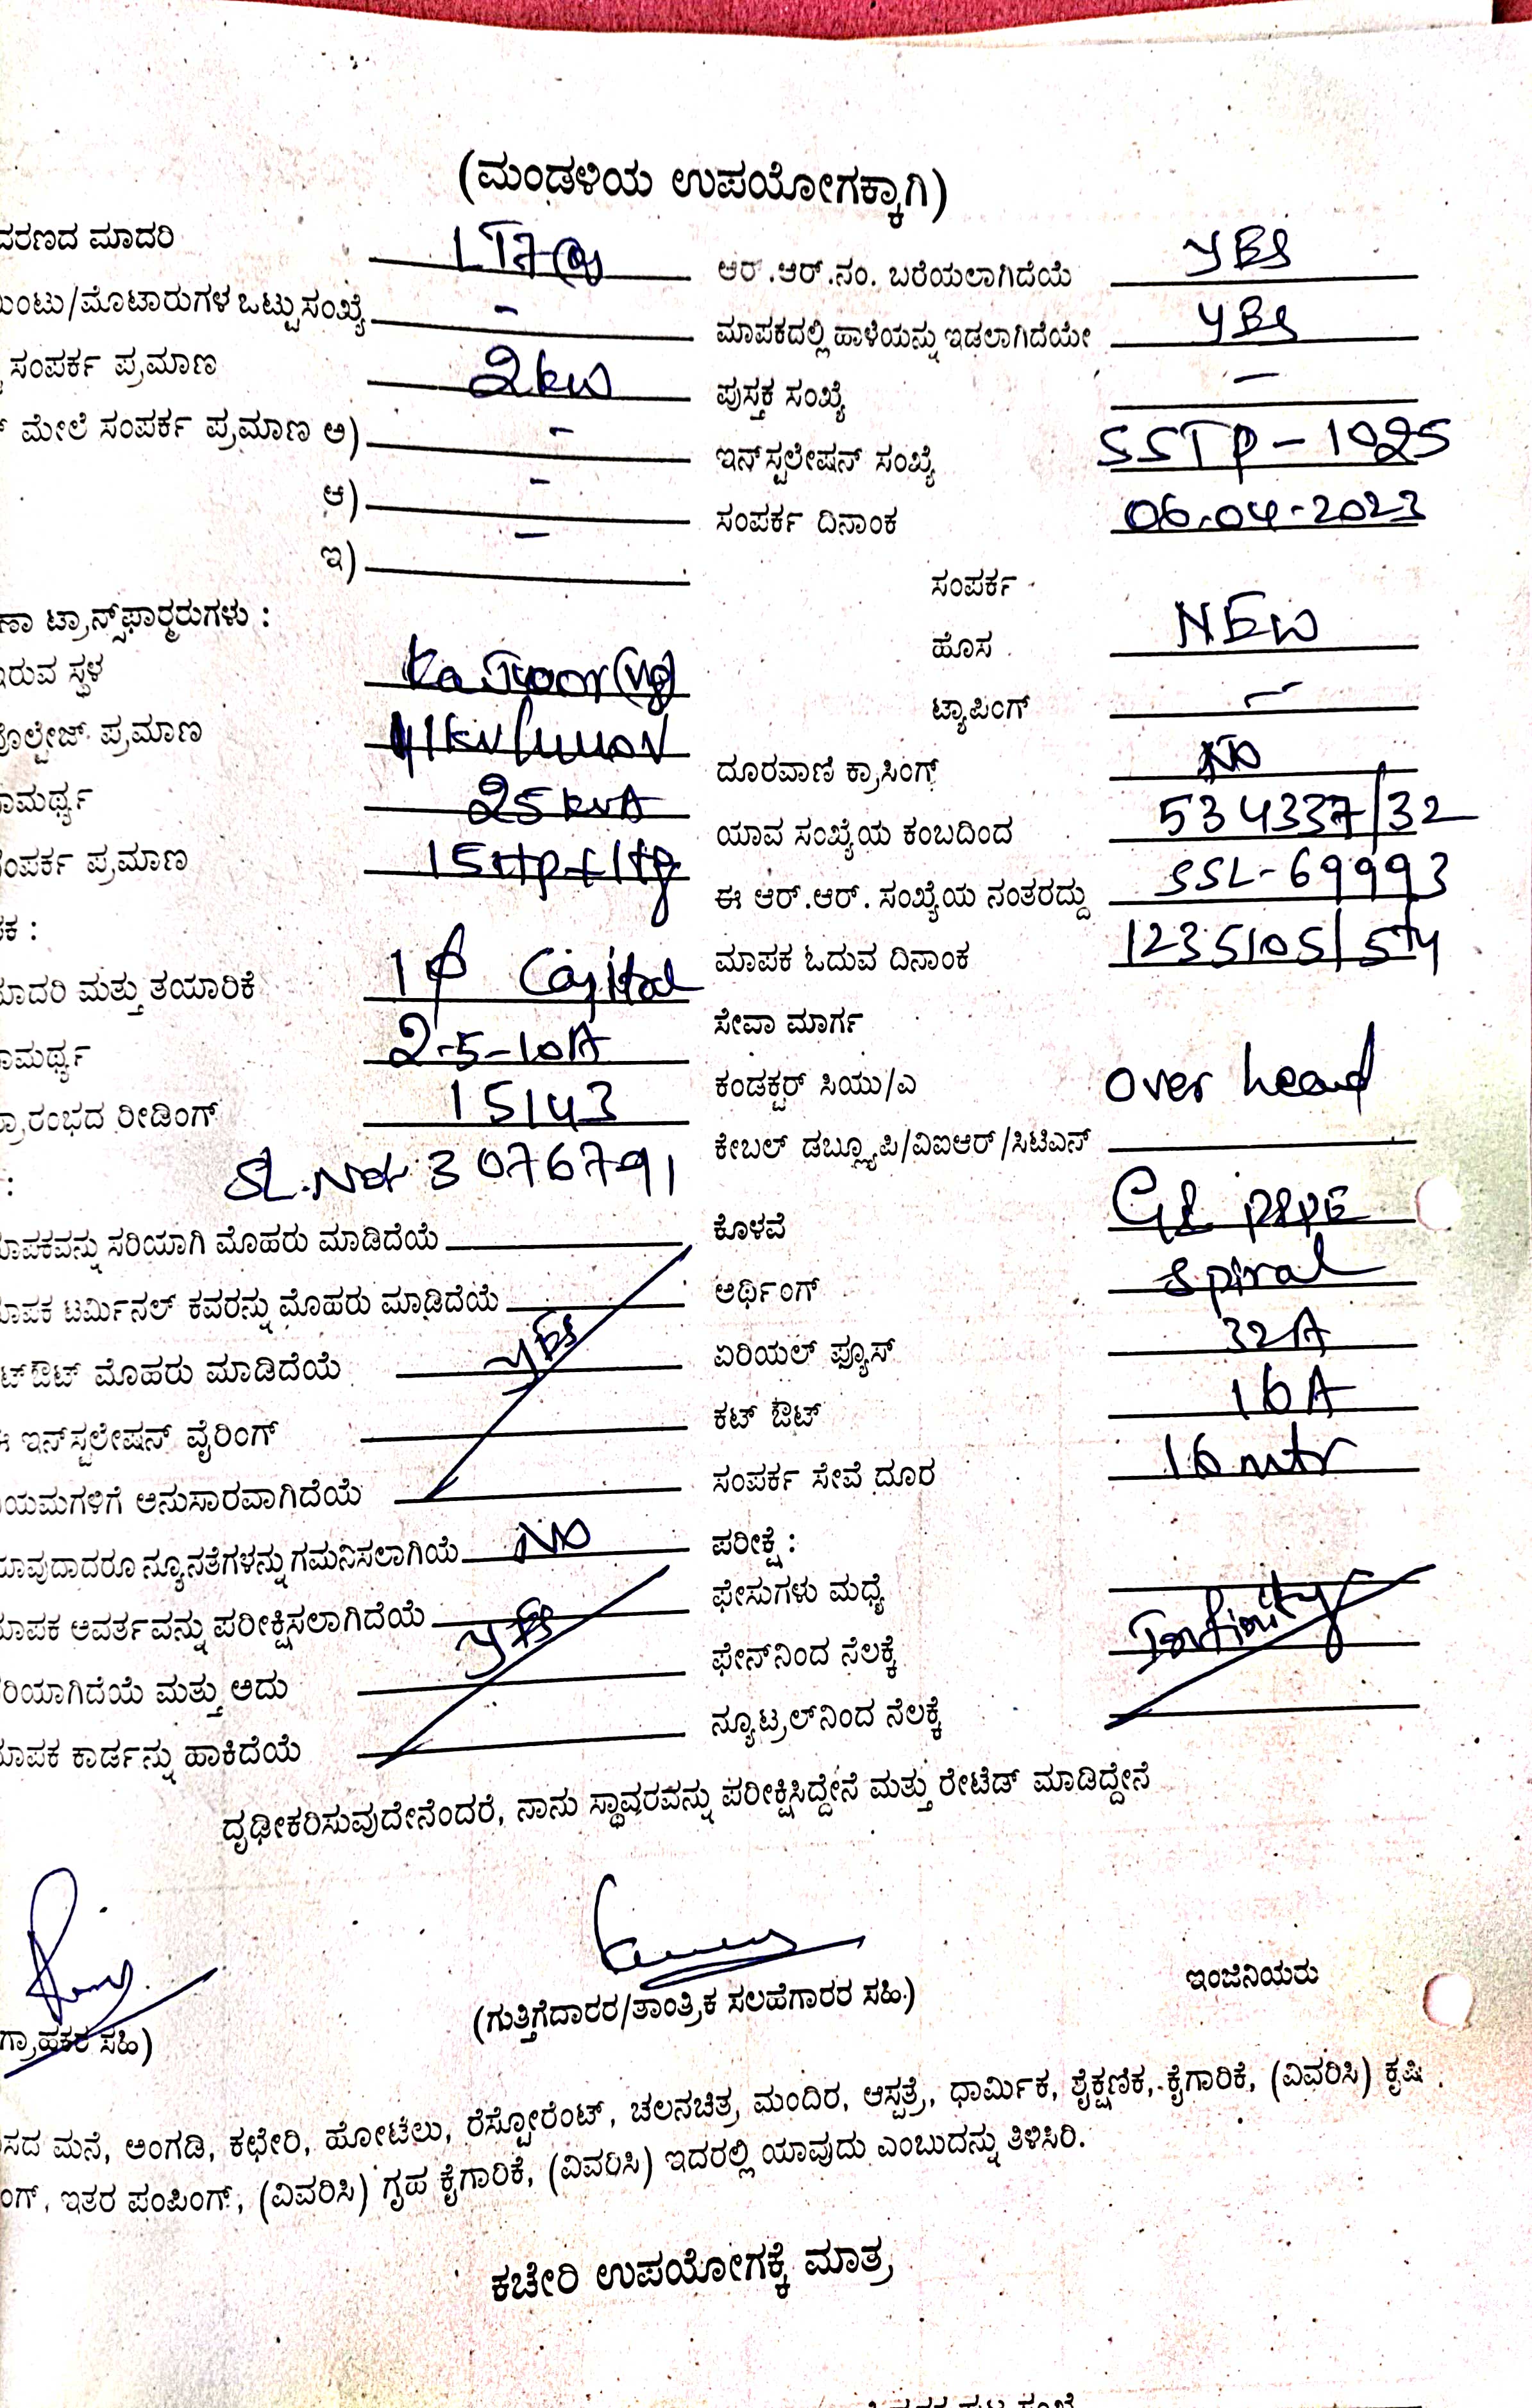 (ಮಂಡಳಿಯ ಉಪಯೋಗಕ್ಕಾಗಿ)
ವರಣದ ಮಾದರಿ LT7(a) ಆರ್.ಆರ್.ನಂ. ಬರೆಯಲಾಗಿದೆಯೆ YES
ಯಿಂಟು/ಮೊಟಾರುಗಳ ಒಟ್ಟು ಸಂಖ್ಯೆ - ಮಾಪಕದಲ್ಲಿ ಹಾಳೆಯನ್ನು ಇಡಲಾಗಿದೆಯೇ YES
ಸಂಪರ್ಕ ಪ್ರಮಾಣ 2kW ಪುಸ್ತಕ ಸಂಖ್ಯೆ -
ಮೇಲೆ ಸಂಪರ್ಕ ಪ್ರಮಾಣ ಅ) - ಇನ್‌ಸ್ಟಲೇಷನ್ ಸಂಖ್ಯೆ SSTP-1025
ಆ) - ಸಂಪರ್ಕ ದಿನಾಂಕ 06.04-2023
ಇ) - ಸಂಪರ್ಕ
ಣಾ ಟ್ರಾನ್ಸ್‌ಫಾರ್ಮರುಗಳು : ಹೊಸ NEW
ಇರುವ ಸ್ಥಳ ಟ್ಯಾಪಿಂಗ್ -
ವೊಲ್ಟೇಜ್ ಪ್ರಮಾಣ ದೂರವಾಣಿ ಕ್ರಾಸಿಂಗ್ NO
ಾಮರ್ಥ್ಯ 25kVA ಯಾವ ಸಂಖ್ಯೆಯ ಕಂಬದಿಂದ 534337/32
ಸಂಪರ್ಕ ಪ್ರಮಾಣ 15Hp+1Hp ಈ ಆರ್.ಆರ್. ಸಂಖ್ಯೆಯ ನಂತರದ್ದು SSL-69993
ಪಕ : ಮಾಪಕ ಓದುವ ದಿನಾಂಕ 1235105/5th
ಮಾದರಿ ಮತ್ತು ತಯಾರಿಕೆ 1ϕ Capital ಸೇವಾ ಮಾರ್ಗ
ಾಮರ್ಥ್ಯ 2.5-10A ಕಂಡಕ್ಟರ್ ಸಿಯು/ಎ over head
ಪ್ರಾರಂಭದ ರೀಡಿಂಗ್ 15143 ಕೇಬಲ್ ಡಬ್ಲ್ಯೂಪಿ/ವಿಐಆರ್/ಸಿಟಿಎಸ್
: SL.No: 3076791
ಮಾಪಕವನ್ನು ಸರಿಯಾಗಿ ಮೊಹರು ಮಾಡಿದೆಯೆ ಕೊಳವೆ GI PIPE
ಮಾಪಕ ಟರ್ಮಿನಲ್ ಕವರನ್ನು ಮೊಹರು ಮಾಡಿದೆಯೆ ಅರ್ಥಿಂಗ್ spiral
ಟ್‌ಔಟ್ ಮೊಹರು ಮಾಡಿದೆಯೆ YES ಏರಿಯಲ್ ಫ್ಯೂಸ್ 32A
ಈ ಇನ್‌ಸ್ಟಲೇಷನ್ ವೈರಿಂಗ್ ಕಟ್ ಔಟ್ 16A
ನಿಯಮಗಳಿಗೆ ಅನುಸಾರವಾಗಿದೆಯೆ ಸಂಪರ್ಕ ಸೇವೆ ದೂರ 16mtr
ಯಾವುದಾದರೂ ನ್ಯೂನತೆಗಳನ್ನು ಗಮನಿಸಲಾಗಿಯೆ NO ಪರೀಕ್ಷೆ :
ಮಾಪಕ ಆವರ್ತವನ್ನು ಪರೀಕ್ಷಿಸಲಾಗಿದೆಯೆ YES ಫೇಸುಗಳು ಮಧ್ಯೆ
ಸರಿಯಾಗಿದೆಯೆ ಮತ್ತು ಅದು ಫೇಸ್‌ನಿಂದ ನೆಲಕ್ಕೆ Infinity
ಮಾಪಕ ಕಾರ್ಡನ್ನು ಹಾಕಿದೆಯೆ ನ್ಯೂಟ್ರಲ್‌ನಿಂದ ನೆಲಕ್ಕೆ
ದೃಢೀಕರಿಸುವುದೇನೆಂದರೆ, ನಾನು ಸ್ಥಾವರವನ್ನು ಪರೀಕ್ಷಿಸಿದ್ದೇನೆ ಮತ್ತು ರೇಟೆಡ್ ಮಾಡಿದ್ದೇನೆ
ಗ್ರಾಹಕರ ಸಹಿ) (ಗುತ್ತಿಗೆದಾರರ/ತಾಂತ್ರಿಕ ಸಲಹೆಗಾರರ ಸಹಿ.) ಇಂಜಿನಿಯರು
ಸದ ಮನೆ, ಅಂಗಡಿ, ಕಛೇರಿ, ಹೋಟೆಲು, ರೆಸ್ಟೋರೆಂಟ್, ಚಲನಚಿತ್ರ ಮಂದಿರ, ಆಸ್ಪತ್ರೆ, ಧಾರ್ಮಿಕ, ಶೈಕ್ಷಣಿಕ, ಕೈಗಾರಿಕೆ, (ವಿವರಿಸಿ) ಕೃಷಿ
ಂಗ್, ಇತರ ಪಂಪಿಂಗ್, (ವಿವರಿಸಿ) ಗೃಹ ಕೈಗಾರಿಕೆ, (ವಿವರಿಸಿ) ಇದರಲ್ಲಿ ಯಾವುದು ಎಂಬುದನ್ನು ತಿಳಿಸಿರಿ.
ಕಚೇರಿ ಉಪಯೋಗಕ್ಕೆ ಮಾತ್ರ